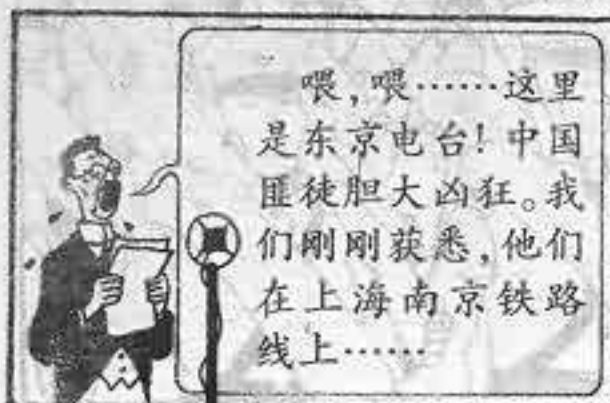 喂，喂……这里
是东京电台！中国
匪徒胆大凶狂。我
们刚刚获悉，他们
在上海南京铁路
线上……